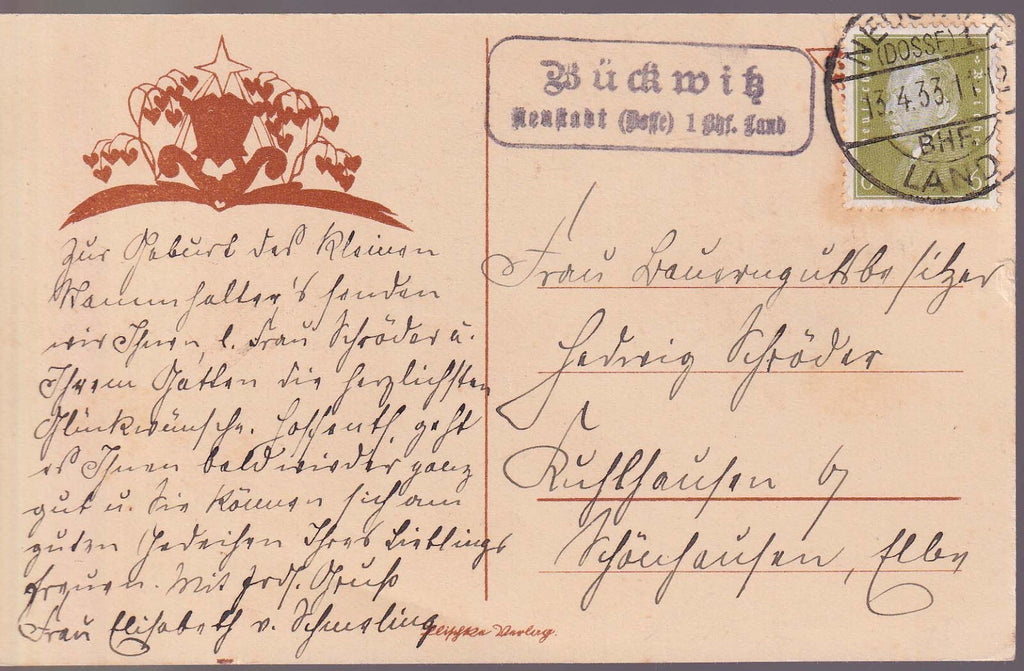 Zur Geburt des kleinen
Stammhalter's senden
wir Ihnen, l. Frau Schröder u.
Ihrem Gatten die herzlichsten
Glückwünsche. Hoffentl. geht
es Ihnen bald wieder ganz
gut u. Sie können sich am
guten Gedeihen Ihres Lieblings
freuen. Mit frdl. Gruß
Frau Elisabeth v. Schmeling
Bückwitz
Neustadt (Dosse) 1 Bhf. Land
(DOSSE) 1
13.4.33. 11-12
BHF.
LAND
Frau Bauerngutsbesitzer
Hedwig Schröder
Kuhlhausen b/
Schönhausen, Elbe
Plischke Verlag.